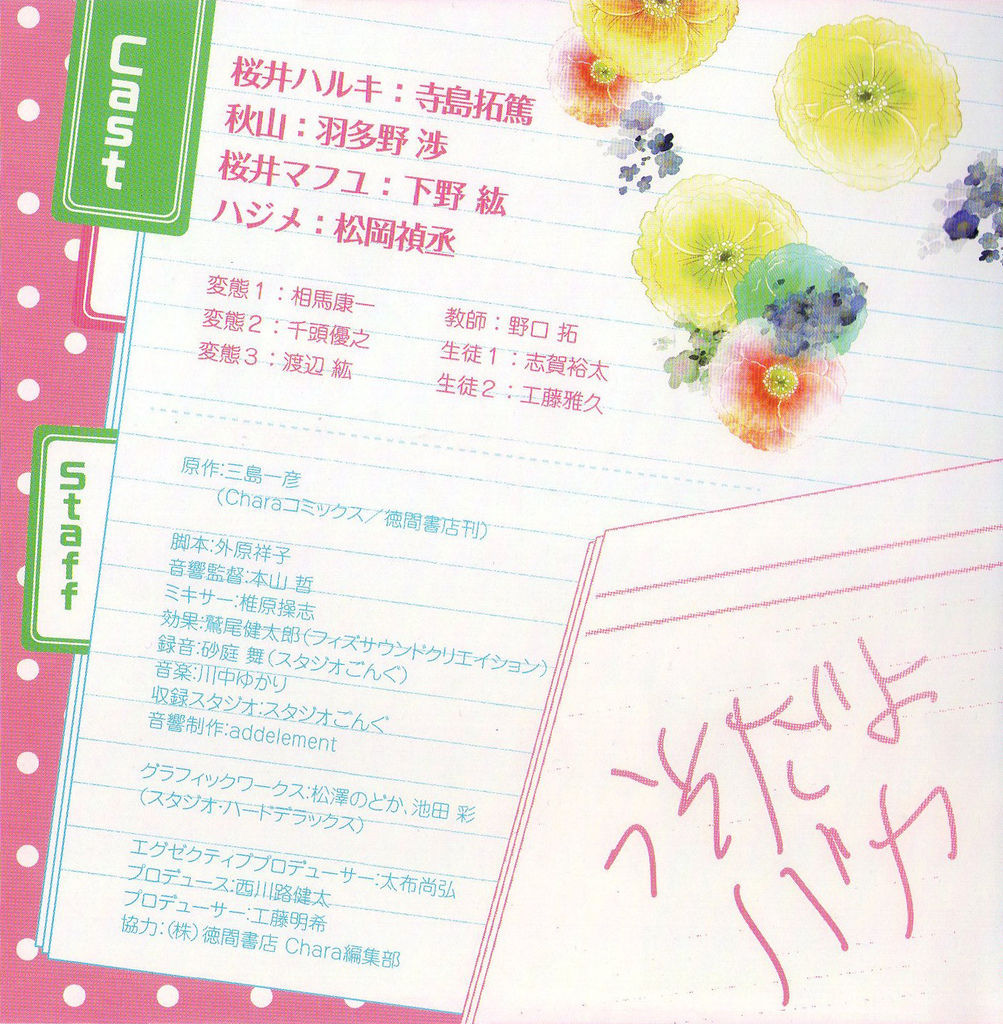 Cast
桜井ハルキ：寺島拓篤
秋山：羽多野 渉
桜井マフユ：下野 紘
ハジメ：松岡禎丞
変態1：相馬康一
変態2：千頭優之
変態3：渡辺 紘
教師：野口 拓
生徒1：志賀裕太
生徒2：工藤雅久
Staff
原作:三島一彦
(Charaコミックス／徳間書店刊)
脚本:外原祥子
音響監督:本山 哲
ミキサー:椎原操志
効果:鷲尾健太郎(フィズサウンドクリエイション)
録音:砂庭 舞(スタジオごんぐ)
音楽:川中ゆかり
収録スタジオ:スタジオごんぐ
音響制作:addelement
グラフィックワークス:松澤のどか、池田 彩
(スタジオ・ハードデラックス)
エグゼクティブプロデューサー:太布尚弘
プロデュース:西川路健太
プロデューサー:工藤明希
協力:(株)徳間書店 Chara編集部
うそだよ
バカ